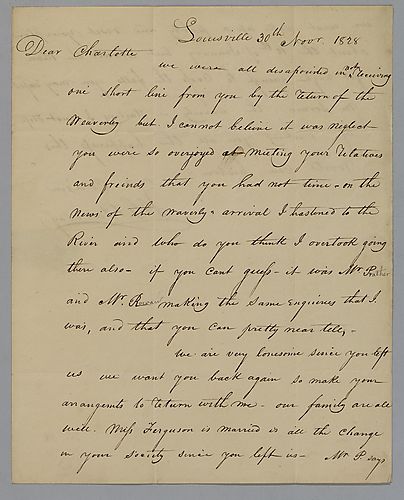 Louisville 30th Novr. 1828
Dear Charlotte
we were all disapointed in not receiving
one short line from you by the return of the
Weaverly but I cannot beleive it was neglect
you were so overjoyed at meeting your relatives
and friends that you had not time - on the
news of the Waverly's arrival I hastened to the
River and who do you think I overtook going
there also - if you cant guess - it was Mr. Prather
and Mr. making the same enquiries that I
was, and that you can pretty near tell, -
We are very lonesome since you left
us we want you back again so make your
arrangemts to return with me - our family are all
well. Miss Ferguson is married is all the change
in your Society since you left us - Mr P. says